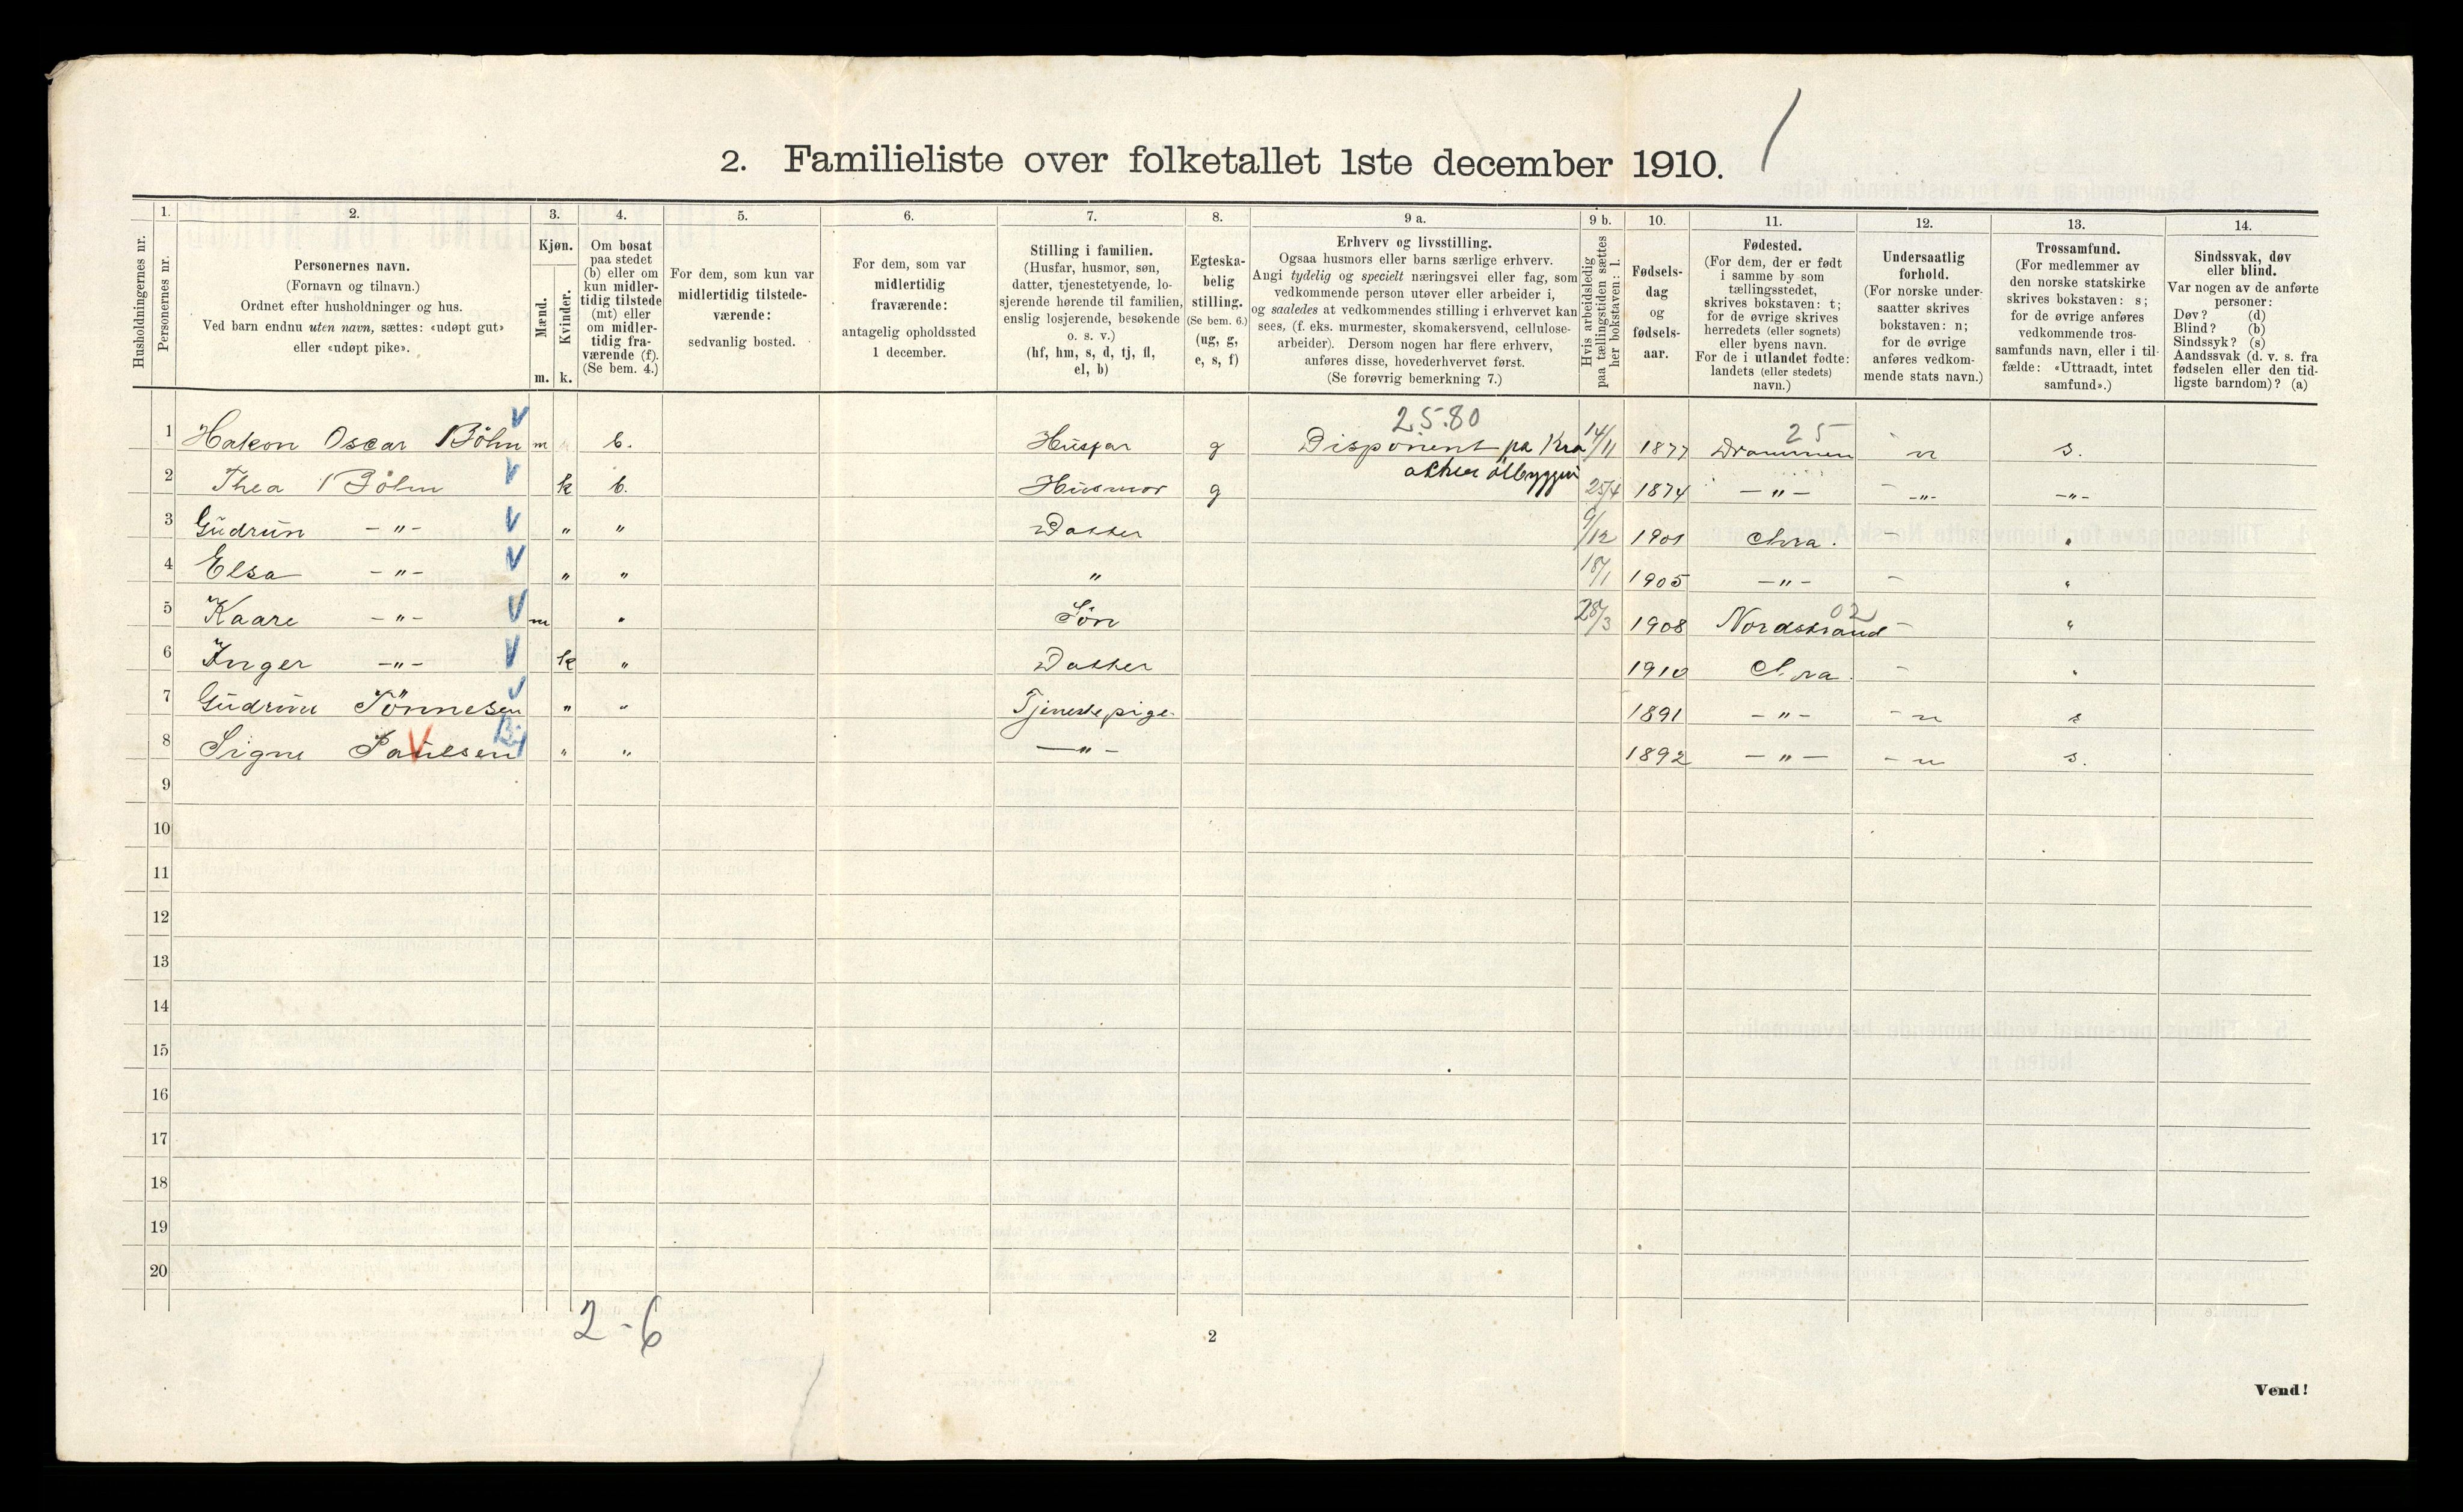 2. Familieliste over folketallet 1ste december 1910.
1. 2. 3. 4. 5. 6. 7. 8. 9 a. 9 b. 10. 11. 12. 13. 14.
Husholdningernes nr.
Personernes nr.
Personernes navn.
(Fornavn og tilnavn.)
Ordnet efter husholdninger og hus.
Ved barn endnu uten navn, sættes: «udøpt gut»
eller «udøpt pike».
Kjøn.
Mænd.
Kvinder.
m. k.
Om bosat
paa stedet
(b) eller om
kun midler-
tidig tilstede
(mt) eller
om midler-
tidig fra-
værende (f).
(Se bem. 4.)
For dem, som kun var
midlertidig tilstede-
værende:
sedvanlig bosted.
For dem, som var
midlertidig
fraværende:
antagelig opholdssted
1 december.
Stilling i familien.
(Husfar, husmor, søn,
datter, tjenestetyende, lo-
sjerende hørende til familien,
enslig losjerende, besøkende
o. s. v.)
(hf, hm, s, d, tj, fl,
el, b)
Egteska-
belig
stilling.
(Se bem. 6.)
(ug, g,
e, s, f)
Erhverv og livsstilling.
Ogsaa husmors eller barns særlige erhverv.
Angi tydelig og specielt næringsvei eller fag, som
vedkommende person utøver eller arbeider i,
og saaledes at vedkommendes stilling i erhvervet kan
sees, (f. eks. murmester, skomakersvend, cellulose-
arbeider). Dersom nogen har flere erhverv,
anføres disse, hovederhvervet først.
(Se forøvrig bemerkning 7.)
Hvis arbeidsledig
paa tællingstiden sættes
her bokstaven: l.
Fødsels-
dag
og
fødsels-
aar.
Fødested.
(For dem, der er født
i samme by som
tællingsstedet,
skrives bokstaven: t;
for de øvrige skrives
herredets (eller sognets)
eller byens navn.
For de i utlandet fødte:
landets (eller stedets)
navn.)
Undersaatlig
forhold.
(For norske under-
saatter skrives
bokstaven: n;
for de øvrige
anføres vedkom-
mende stats navn.)
Trossamfund.
(For medlemmer av
den norske statskirke
skrives bokstaven: s;
for de øvrige anføres
vedkommende tros-
samfunds navn, eller i til-
fælde: «Uttraadt, intet
samfund».)
Sindssvak, døv
eller blind.
Var nogen av de anførte
personer:
Døv? (d)
Blind? (b)
Sindssyk? (s)
Aandssvak (d. v. s. fra
fødselen eller den tid-
ligste barndom)? (a)
2.5.80 25
1 Hakon Oscar Böhn m b. Husfar g Disponent pa Kra 14/11 1877 Drammen n s.
2 Thea Böhn k b. Husmor g 25/4 1874 -"- -"- -"-
3 Gudrun -"- " " Datter 9/12 1901 Chra. "
4 Elsa -"- " " " 18/1 1905 -"- "
5 Kaare -"- m " Søn 28/3 1908 Nordstrand 02 "
6 Inger -"- k " Datter 1910 Chra. "
7 Gudrun Tönnesen " " Tjenestepige 1891 -"- n s
8 Signe Paulsen " " -"- 1892 -"- n s.
9
10
11
12
13
14
15
16
17
18
19
20
2-6
2
Vend!